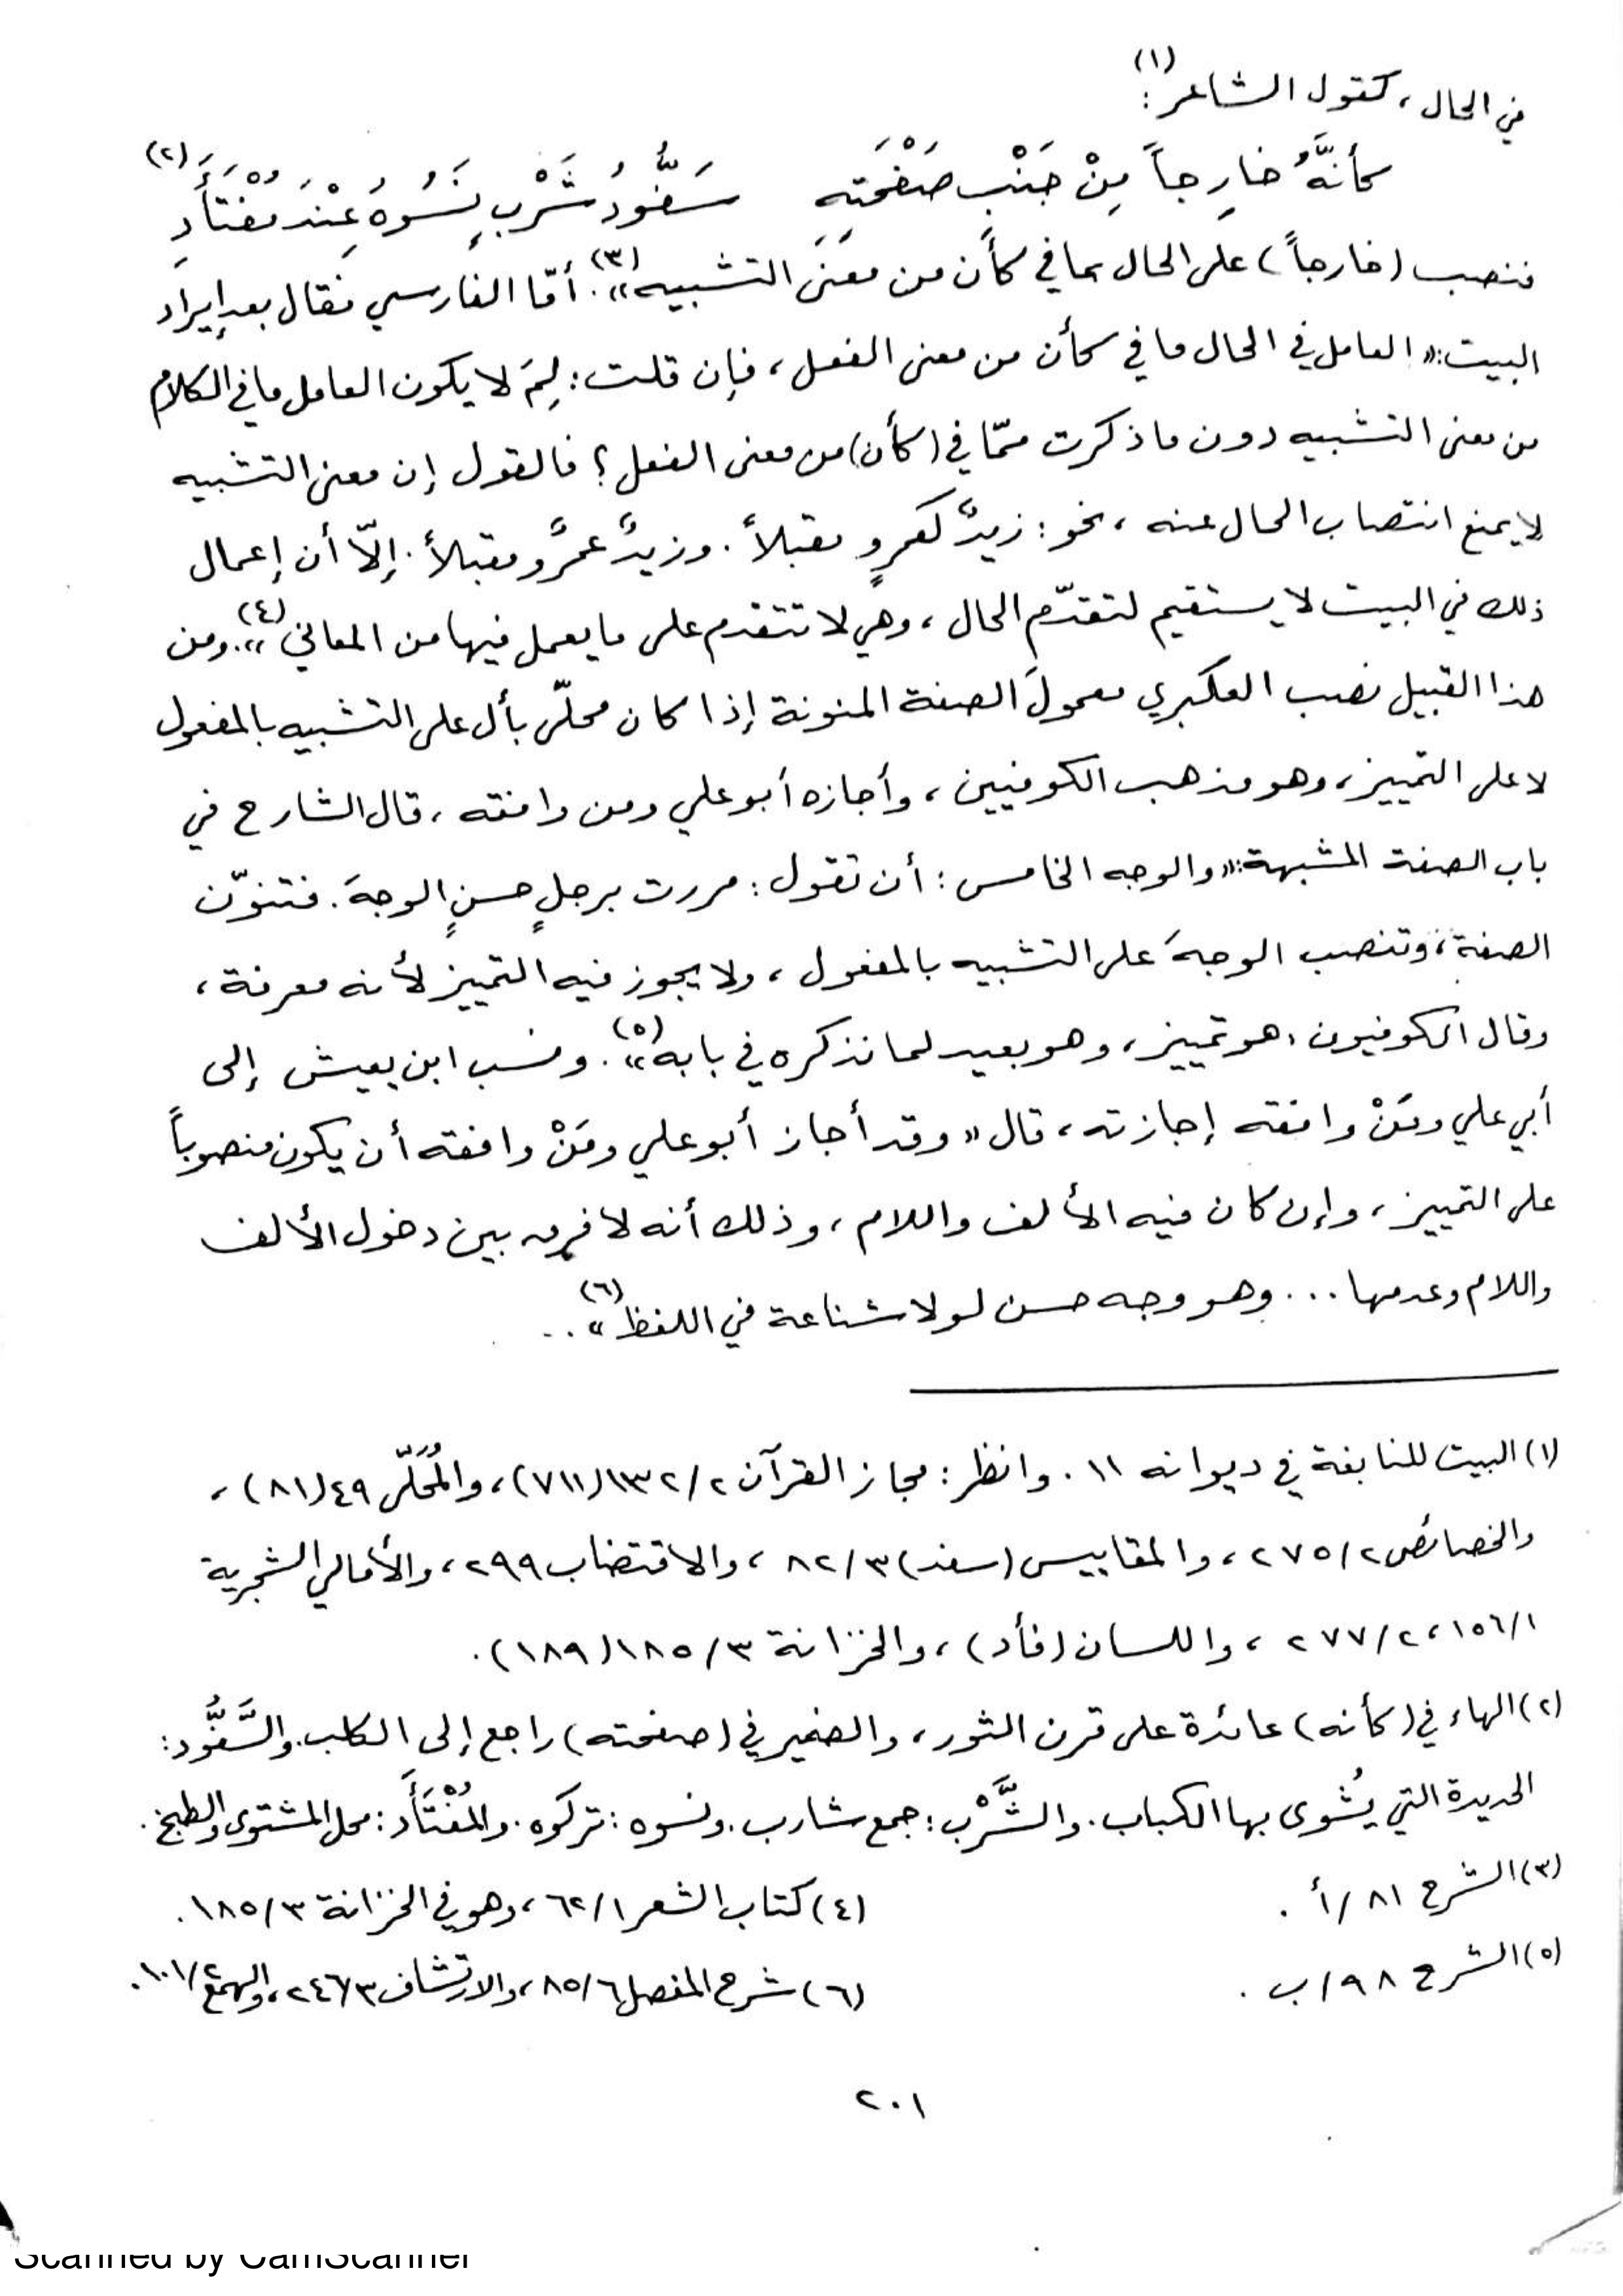 في الحال، كقول الشاعر(١):
كأنَّهُ خارِجاً مِنْ جَنْبِ صَفْحَتِهِ سَفُّودُ شَرْبٍ نَسُوهُ عِنْدَ مُفْتَأَدِ(٢)
فنصب (خارجاً) على الحال بما في كأن من معنى التشبيه»(٣). أمّا الفارسي فقال بعد إيراد
البيت: «العامل في الحال ما في كأن من معنى الفعل، فإن قلت: لِمَ لا يكون العامل ما في الكلام
من معنى التشبيه دون ما ذكرت ممّا في (كأن) من معنى الفعل؟ فالقول إن معنى التشبيه
لا يمنع انتصاب الحال عنه، نحو: زيدٌ كعمرٍو مقبلاً. وزيدٌ عمرٌو مقبلاً. إلّا أن إعمال
ذلك في البيت لا يستقيم لتقدّم الحال، وهي لا تتقدم على ما يعمل فيها من المعاني»(٤). ومن
هذا القبيل نصب العكبري معمولَ الصفة المنونة إذا كان محلّى بأل على التشبيه بالمفعول
لا على التمييز، وهو مذهب الكوفيين، وأجازه أبو علي ومن وافقه، قال الشارح في
باب الصفة المشبهة: «والوجه الخامس: أن تقول: مررت برجلٍ حسنٍ الوجهَ. فتنوّن
الصفة، وتنصب الوجهَ على التشبيه بالمفعول، ولا يجوز فيه التمييز لأنه معرفة،
وقال الكوفيون: هو تمييز، وهو بعيد لما نذكره في بابه»(٥). ونسب ابن يعيش إلى
أبي علي ومَنْ وافقه إجازته، قال «وقد أجاز أبو علي ومَنْ وافقه أن يكون منصوباً
على التمييز، وإن كان فيه الألف واللام، وذلك أنه لا فرق بين دخول الألف
واللام وعدمها... وهو وجه حسن لولا شناعة في اللفظ»(٦)..
(١) البيت للنابغة في ديوانه ١١. وانظر: مجاز القرآن ١٣٢/٢ (٧١١)، والمُحَلّى ٤٩ (٨١)،
والخصائص ٢٧٥/٢، والمقاييس (سفد) ٨٢/٣، والاقتضاب ٢٩٩، والأمالي الشجرية
١٥٦/١، ٢٧٧/٢، واللسان (فأد)، والخزانة ١٨٥/٣ (١٨٩).
(٢) الهاء في (كأنه) عائدة على قرن الثور، والضمير في (صفحته) راجع إلى الكلب. والسَّفُّود:
الحديدة التي يُشوى بها الكباب. والشَّرْب: جمع شارب. ونسوه: تركوه. والمُفْتَأَد: محل المشتوى والطبخ.
(٣) الشرح ٨١/أ. (٤) كتاب الشعر ٦٢/١، وهو في الخزانة ١٨٥/٣.
(٥) الشرح ٩٨/ب. (٦) شرح المفصل ٨٥/٦، والارتشاف ٢٤٦/٣، والهمع ١٠١/٢.
٢٠١
Scanned by CamScanner